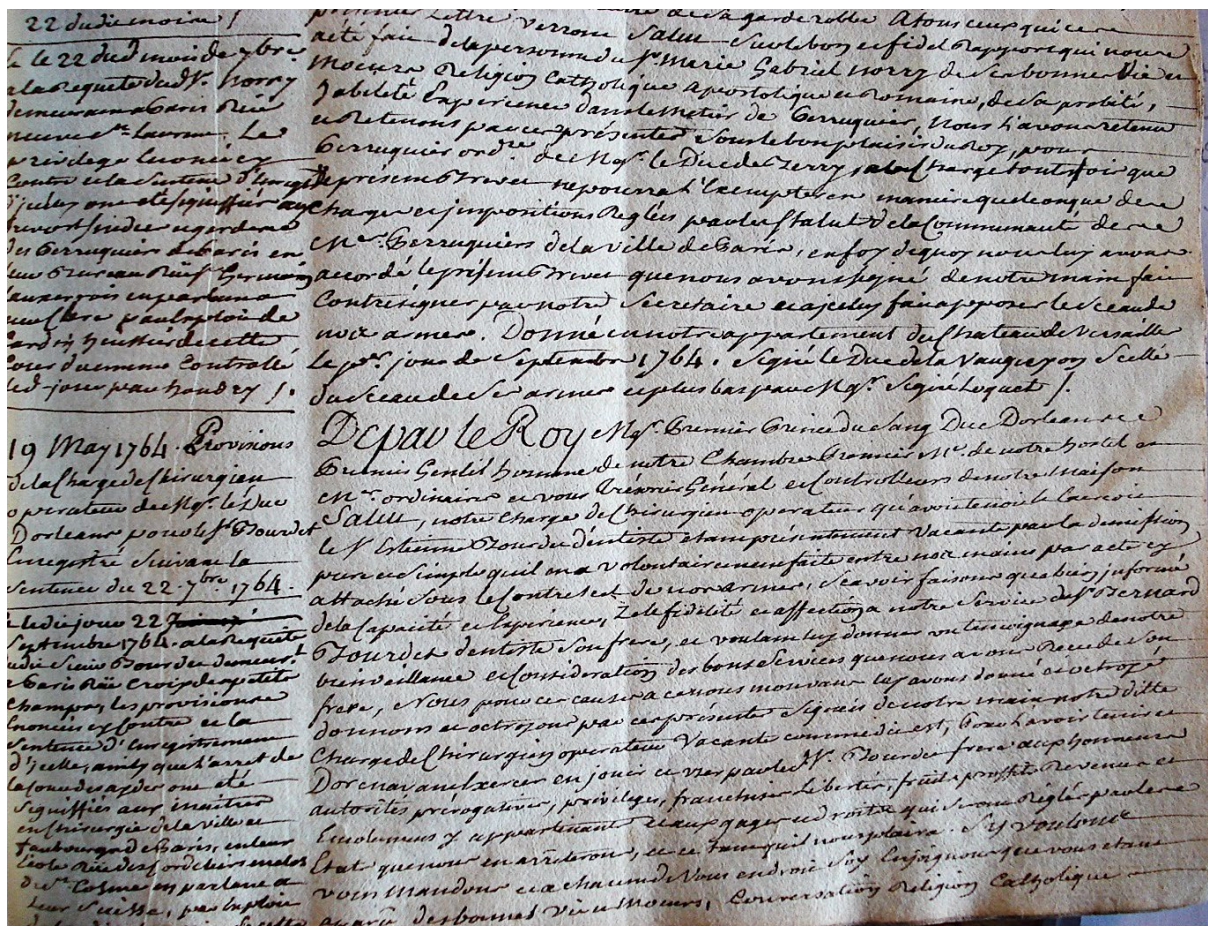 22 dudit mois /
Le 22 dud mois de 7bre
a la Requete dud Sr. Norry
demeurant a Paris Rüe
neuve St. Laurent. Le
privilege Enoncé cy
Contre et la Sentence d'Enregist
d'icelluy ont été signiffiés aux
prevost sindics et gardes
des Perruquiers de Paris en
leur Bureau Rüe St. Germain
Lauxerrois en parlant a
un Clerc par Exploit de
huissier de cette
Cour duement Controllé
led. jour par handry /.
19 May 1764. Provisions
de la Charge de Chirurgien
operateur de Mgr. le Duc
Dorleans pour le Sr. Bourdet
Enregistré Suivant la
Sentence du 22. 7bre. 1764.
Et le dit jour 22
Septembre 1764. a la Requete
dudit Sieur Bourdet demeurt.
a Paris Rüe Croix des petits
champs, les provisions
Enoncées cy Contre et la
Sentence d'Enregistrement
d'icelle, ainsy que l'arret de
la Cour des aydes ont été
Signiffiés aux maitres
en Chirurgie de la ville et
fauxbourgs de Paris, en leur
Ecole Rüe des Cordeliers
St. Cosme en parlant a
leur Suisse, par Exploit
presentes Lettres Verront Salut Sur le bon et fidel Rapport qui nous a
été fait de la personne du Sr. Marie Gabriel Norry de ses bonnes Vie et
Moeurs Religion Catholique apostolique et Romaine, de sa probité,
habileté Experience dans le Metier de Perruquier, Nous l'avons retenu
et Retenons par ces présentes Sous le bon plaisir du Roy, pour
Perruquier ordre. de Mgr. le Duc de Berry, a la Charge toutefois que
le présent Brevet ne pourra l'Exempter en maniere quelconque des
Charges et impositions Reglés par les Statuts de la Communauté des
Mes. Perruquiers de la Ville de Paris, en foy de quoy nous luy avons
accordé le présent Brevet que nous avons signé de notre main fait
Contresigner par notre Secretaire et a jcelluy fait apposer le Sceau de
nos armes. Donné en notre appartement du Chateau de Versaille
le per. jour de Septembre 1764. Signé le Duc de la Vauguyon Scellé
du Sceau de Ses armes et plus bas par Mgr. Signé Loquet /.
De par le Roy Mgr. Premier Prince du Sang Duc Dorleans
Premier Gentil homme de notre Chambre Premier Me. de notre hostel
Me. ordinaire et vous Trésorier Général et Controlleurs de notre Maison
Salut, notre Charge de Chirurgien operateur qu'avoit
le Sr. Estienne Bourdet dentiste étant présentement Vacante par la demission
pure et Simple quil en a volontairement faite entre nos mains par acte cy
attaché Sous le Contrescel de nos armes, Scavoir faisons que bien jnformé
de la Capacité et Experience, Zele fidelité et affection a notre Service du Sr. Bernard
Bourdet dentiste Son frere, et voulant luy donner un temoignage de notre
bienveillance et Consideration des bons Services que nous avons Recu de Son
frere, Nous pour ces causes a ce nous mouvans luy avons donné et octroyé
donnons et octroyons par ces présentes Signées de notre main notre ditte
Charge de Chirurgien operateur Vacante comme dit est, Pour l'avoir tenir et
Dorenavant Exercer en jouir et user par led Sr. Bourdet frere aux honneurs
autorités prérogatives, privileges, franchises Libertés, fruits proffits Revenus et
Emolumens y appartenant et aux gages et droits qui seront Réglés par les
Etat que nous en arreterons, et ce tant quil nous plaira. Sy voulons
vous mandons et a chacun de Vous en droit Soy Enjoignons que vous etant
aparu des bonnes vie et Moeurs, Conversation Religion Catholique